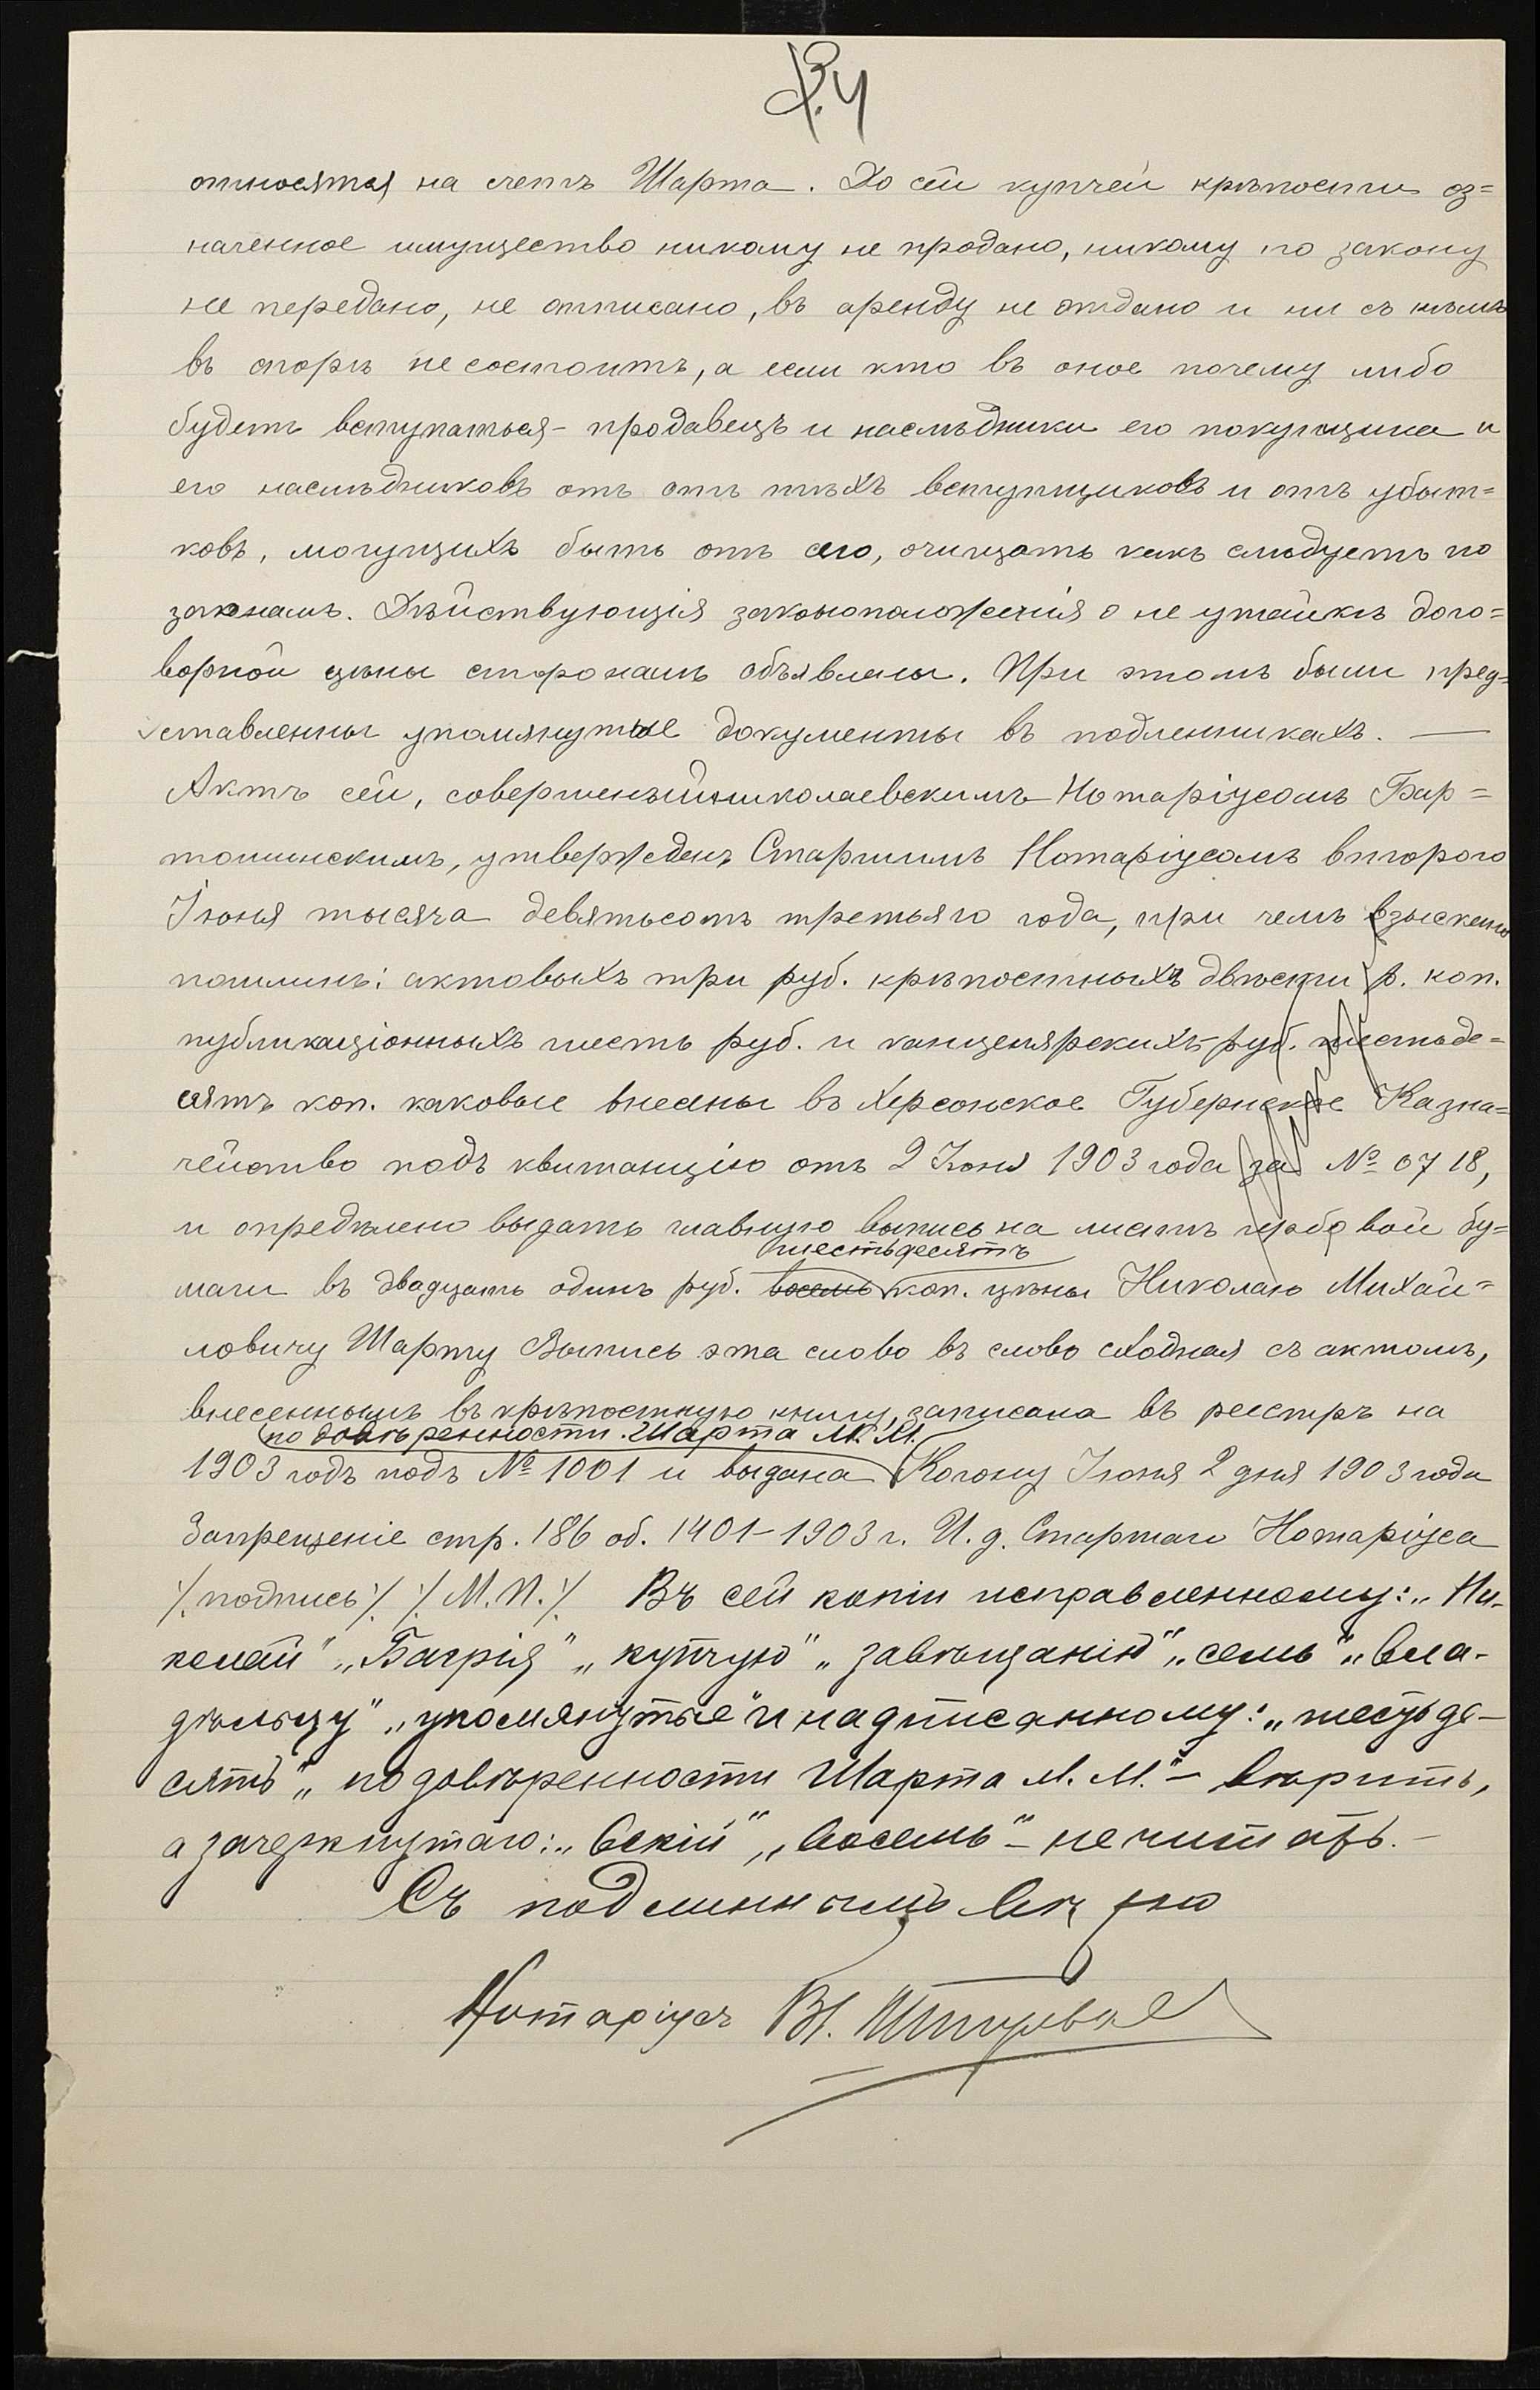 относятся на счетъ Шарта. До сей купчей крѣпости оз=
наченное имущество никому не продано, никому по закону
не передано, не отписано, въ аренду не отдано и ни съ кѣмъ
въ спорѣ не состоитъ, а если кто въ оное почему либо
будетъ вступаться - продавецъ и наслѣдники его покупщика и
его наслѣдниковъ отъ отъ тѣхъ вступщиковъ и отъ убыт=
ковъ, могущихъ быть отъ сего, очищать какъ слѣдуетъ по
законамъ. Дѣйствующія законоположенія о не утайкѣ дого=
ворной цѣны сторонамъ объявлены. При этомъ были пред=
ставленны упомянутые документы въ подленникахъ. —
Актъ сей, совершенный николаевскимъ Нотаріусомъ Бар=
тошинскимъ, утвержденъ Старшимъ Нотаріусомъ второго
Іюня тысяча девятьсотъ третьяго года, при чемъ взыскано
пошлинъ: актовыхъ три руб. крѣпостныхъ двѣсти р. коп.
публикаціонныхъ шесть руб. и канцелярскихъ - руб. шестьде=
сятъ коп. каковые внесены въ Херсонское Губернское Казна=
чейство подъ квитанцію отъ 2 Іюня 1903 года за № 0718,
и опредѣлено выдать главную выпись на листѣ гербовой бу=
шестьдесятъ
маги въ двадцать одинъ руб. восемь коп. цѣны Николаю Михай=
ловичу Шарту Выпись эта слово въ слово сходная съ актомъ,
внесеннымъ въ крѣпостную книгу, записана въ реестръ на
по довѣренности Шарта М. М.
1903 годъ подъ № 1001 и выдана Когону Іюня 2 дня 1903 года
Запрещеніе стр. 186 об. 1401-1903 г. И. д. Старшаго Нотаріуса
/.подпись/. /.М.П./. Въ сей копіи исправленному: „Ни-
колай" „Багрія" „купчую" „завѣщанію" „семь" „вла-
дѣльцу" „упомянутые" и надписанному: „шестьде-
сятъ" „по довѣренности Шарта М. М." - вѣрить,
а зачеркнутаго: „вскій", „восемь" - не читать. -
Съ подлиннымъ вѣрно
Нотаріусъ Вл.